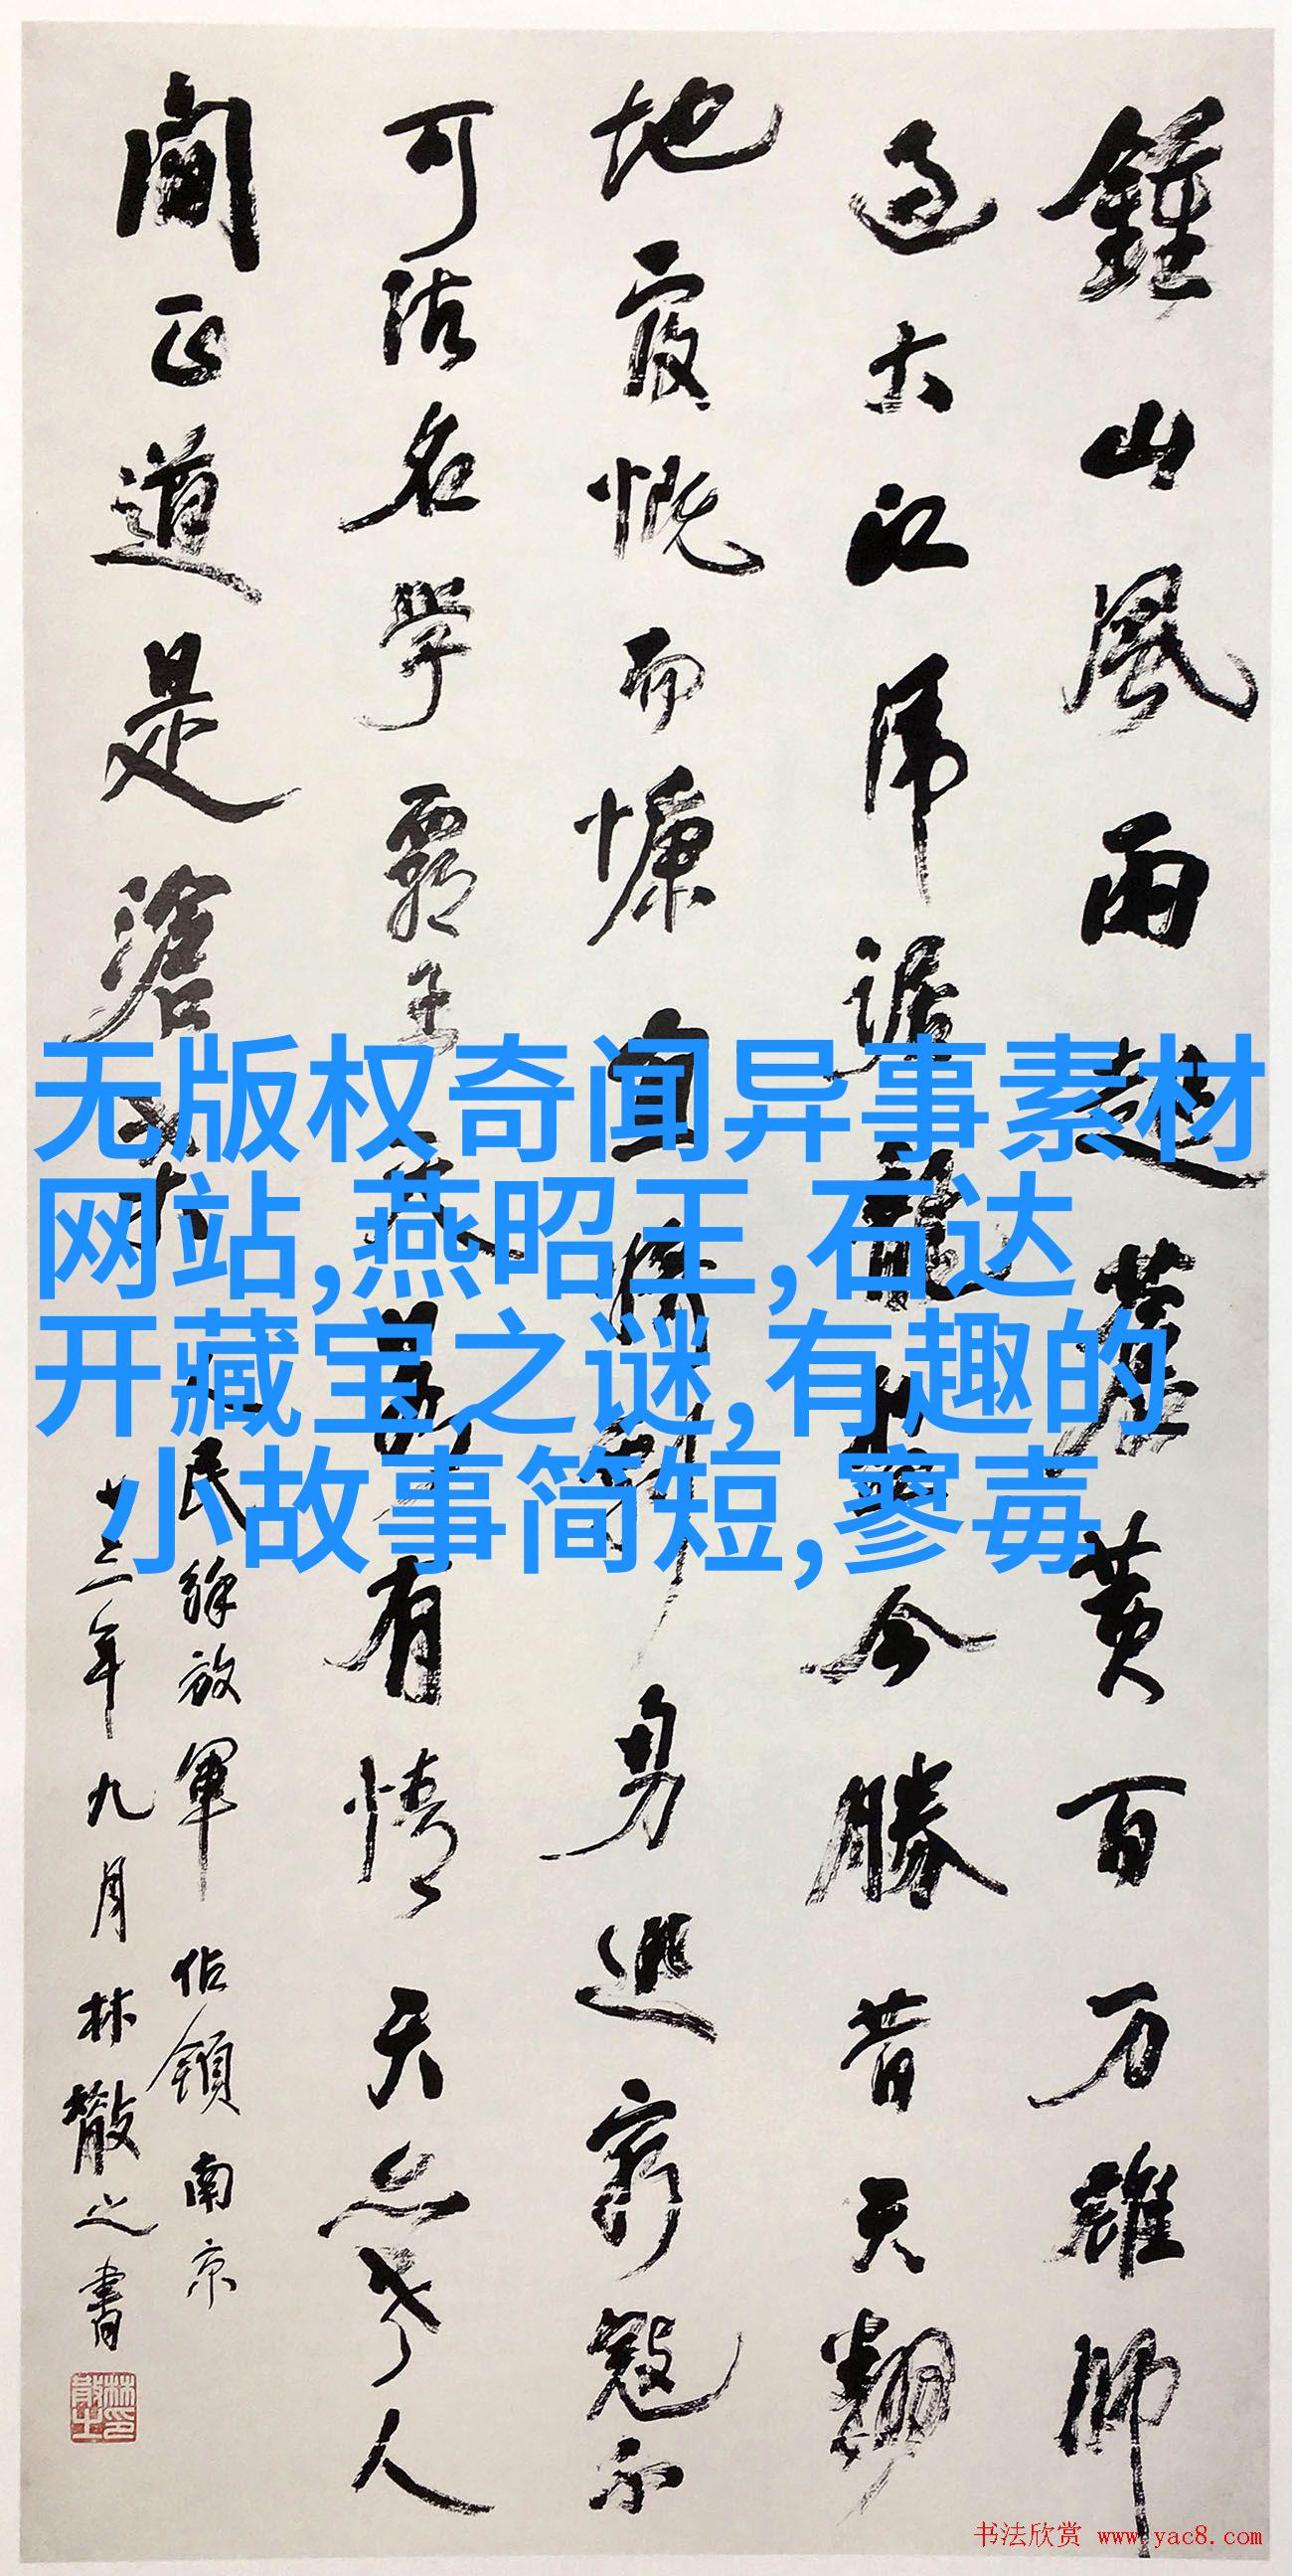 鍾山風雨起蒼黄百万雄師
過大江虎踞龍盤今勝昔天翻
地覆慨而慷宜將剩勇追窮寇不
可沽名學霸王天若有情天亦老人
間正道是滄桑
人民解放軍佔領南京
三年九月林散之書
林散之印
无版权奇闻异事素材
网站,燕昭王,石达
开藏宝之谜,有趣的
小故事简短,寥毐
书法欣赏 www.yac8.com